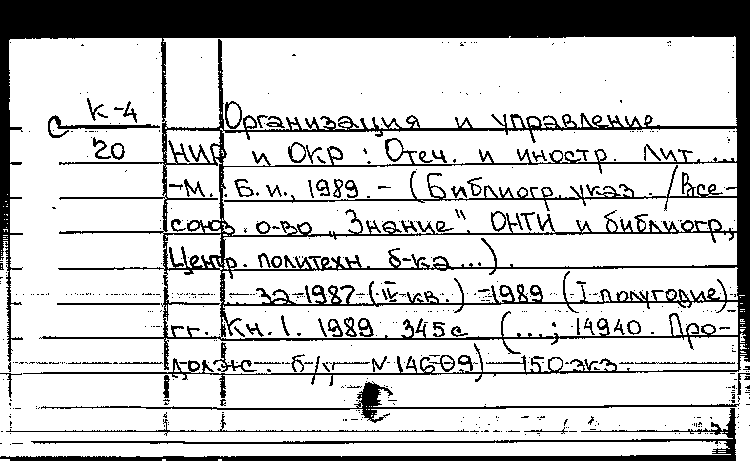 К-4
С 20
Организация и управление
НИР и ОКР : Отеч. и иностр. лит. ...
-М. : Б. и., 1989. - (Библиогр. указ. / Все-
союз. о-во „Знание". ОНТИ и библиогр.,
Центр. политехн. б-ка ...).
... за 1987 (II кв.) -1989 (I полугодие)
гг. Кн. 1. 1989. 345 с (...; 14940. Про-
долж. б/у N 14609). 150 экз.